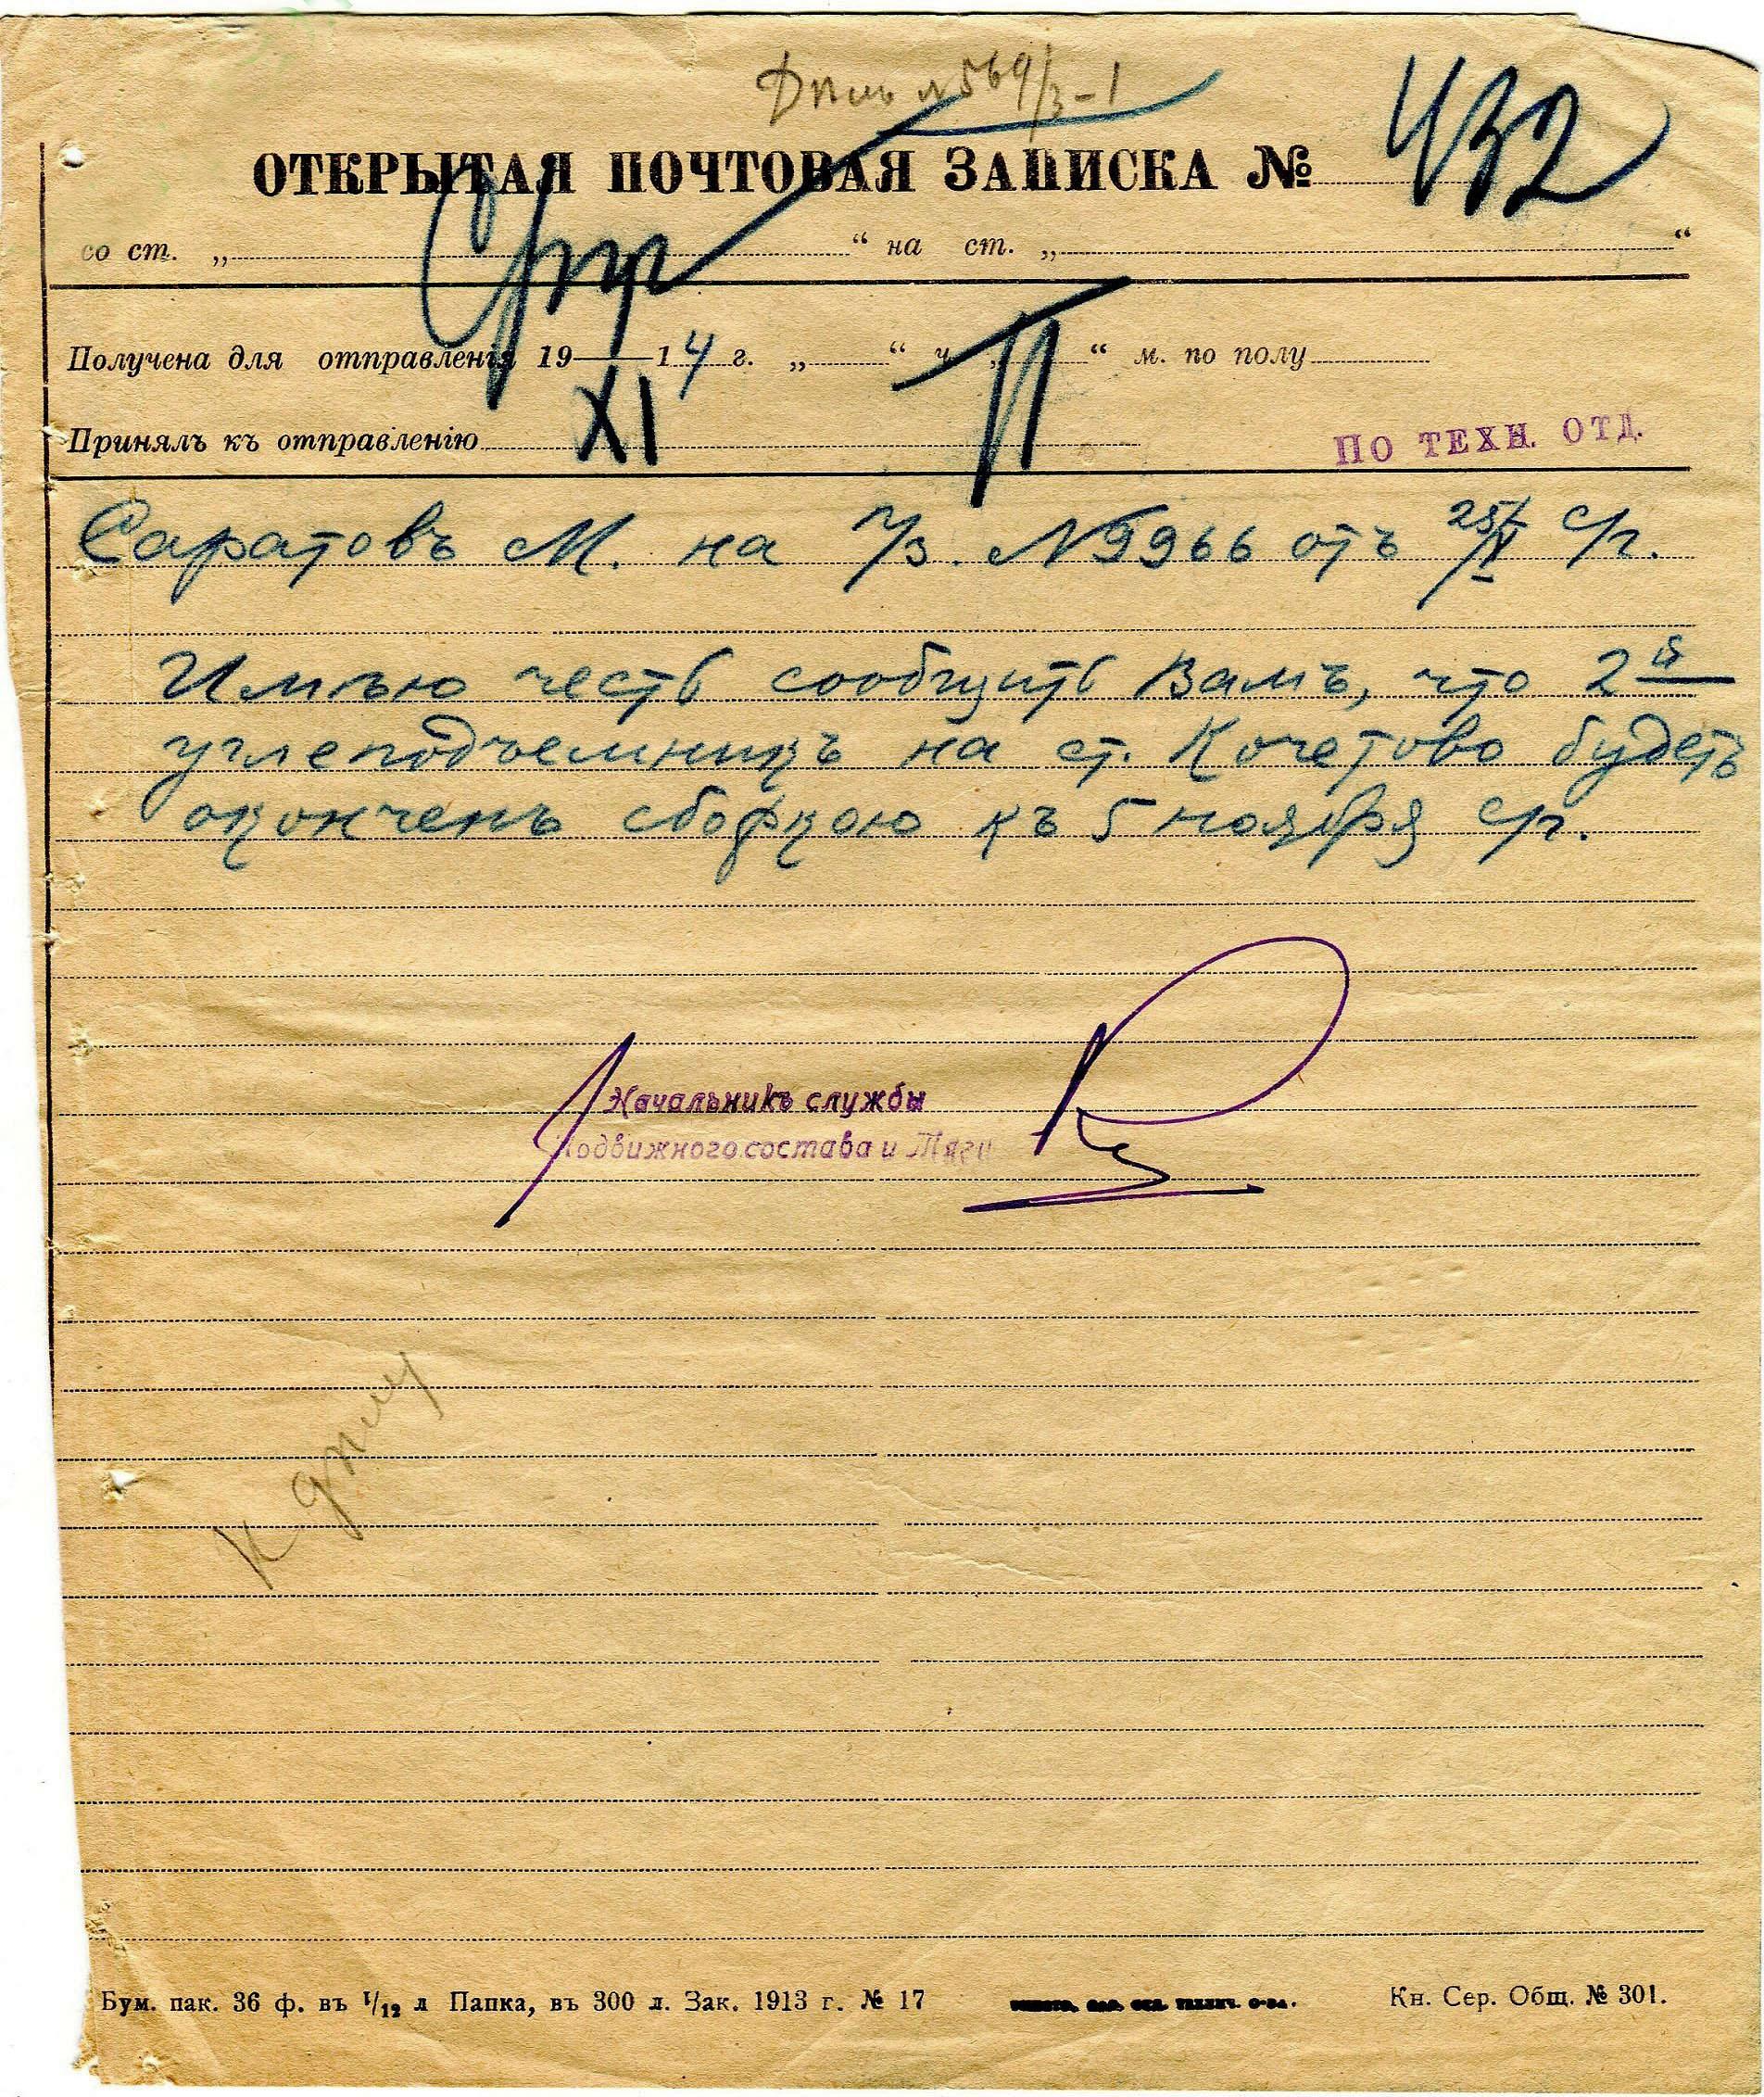 № 569/3-1
ОТКРЫТАЯ ПОЧТОВАЯ ЗАПИСКА № 432
со ст. „ “ на ст. „ “
Получена для отправленія 19 14 г. „ “ ч. „ “ м. по полу
Принялъ къ отправленію XI
ПО ТЕХН. ОТД.
Саратовъ М. на п/з. № 9966 отъ с/г.
Имѣю честь сообщить Вамъ, что 2й
углеподъемникъ на ст. Кочетово будетъ
оконченъ сборкою къ 5 ноября с/г.
Начальникъ службы
Подвижного состава и Тяги
К делу
Бум. пак. 36 ф. въ 1/12 л Папка, въ 300 л. Зак. 1913 г. № 17
Кн. Сер. Общ. № 301.